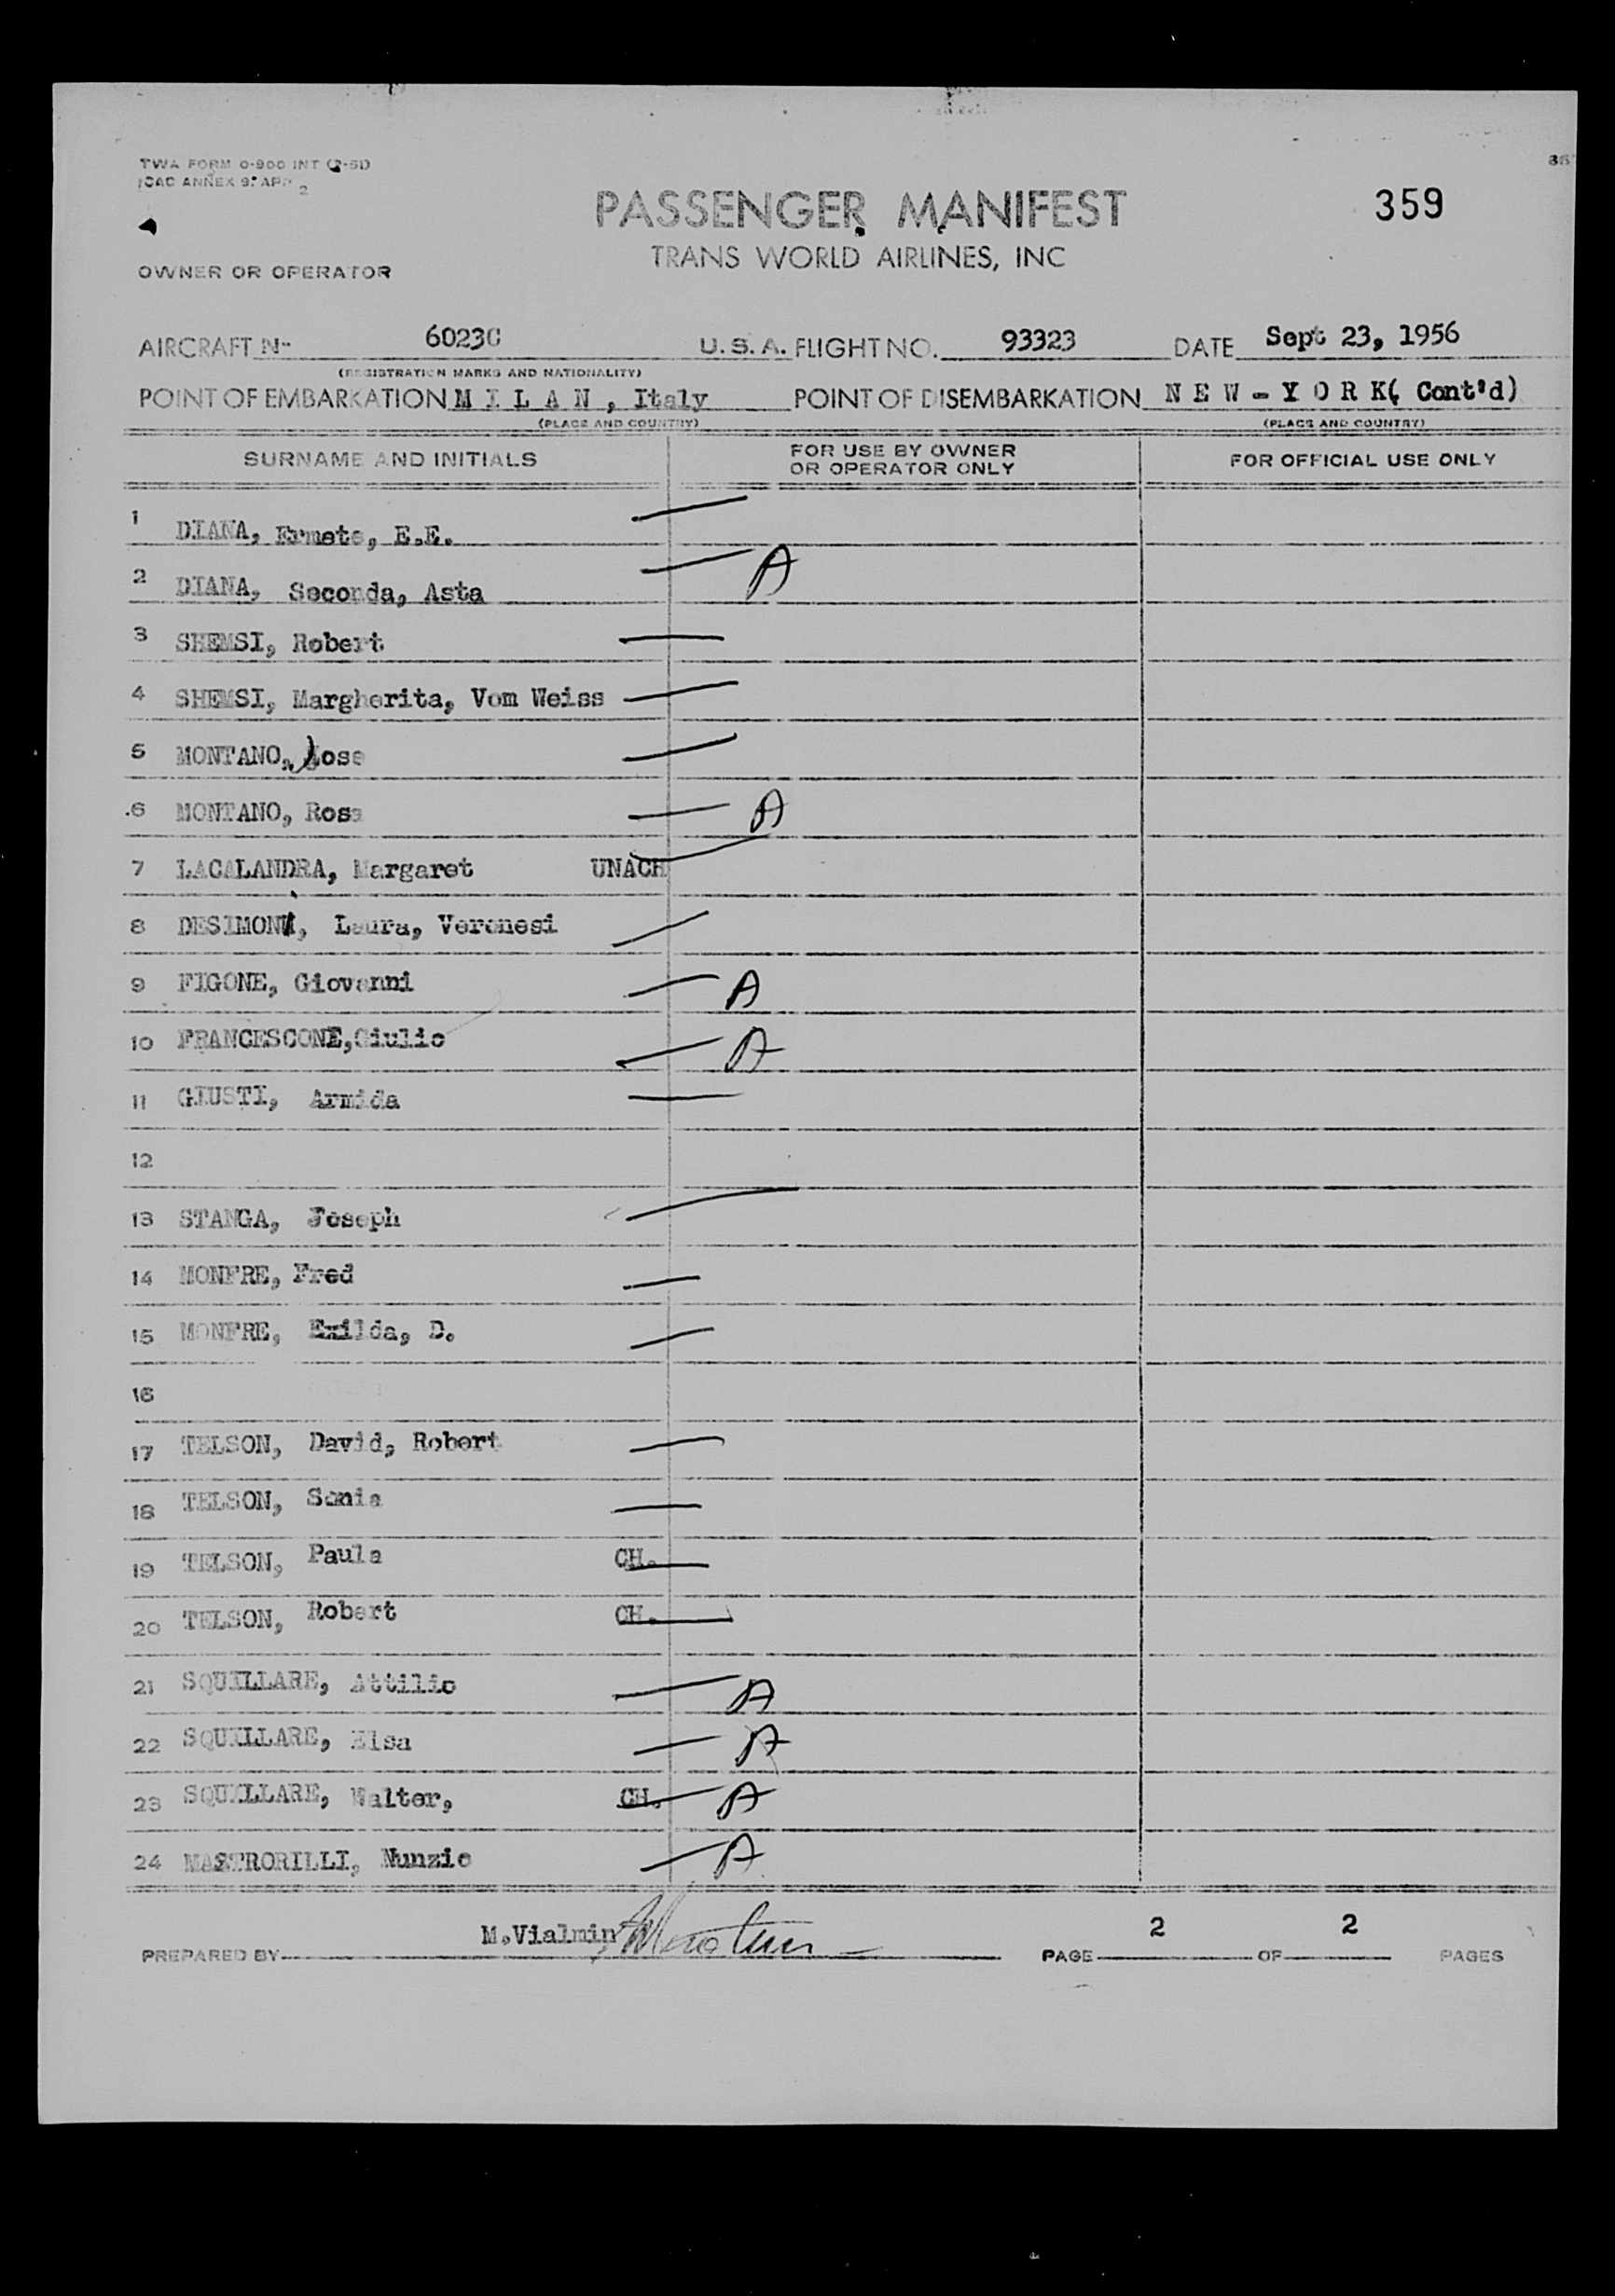 TWA FORM 0-900 INT
ICAO ANNEX 9. APP 2
PASSENGER MANIFEST
359
TRANS WORLD AIRLINES, INC
OWNER OR OPERATOR
AIRCRAFT N- 6023C U.S.A. FLIGHT NO. 93323 DATE Sept 23, 1956
(REGISTRATION MARKS AND NATIONALITY)
POINT OF EMBARKATION M I L A N , Italy POINT OF DISEMBARKATION N E W - Y O R K( Cont'd)
(PLACE AND COUNTRY) (PLACE AND COUNTRY)
SURNAME AND INITIALS FOR USE BY OWNER OR OPERATOR ONLY FOR OFFICIAL USE ONLY
1 DIANA, E.E.
2 DIANA, Seconda, Asta A
3 SHEMSI, Robert
4 SHEMSI, Margherita, Vom Weiss
5 MONTANO, Jose
6 MONTANO, Rosa A
7 LACALANDRA, Margaret UNACH
8 DESIMONI, Laura, Veronesi
9 FIGONE, Giovanni A
10 FRANCESCONE,Giulio A
11 GIUSTI, Armida
12
13 STANGA, Joseph
14 MONFRE, Fred
15 MONFRE, Exilda, D.
16
17 TELSON, David, Robert
18 TELSON, Sonia
19 TELSON, Paula CH.
20 TELSON, Robert CH.
21 SQUILLARE, Attilio A
22 SQUILLARE, Elsa A
23 SQUILLARE, Walter, CH. A
24 MASTRORILLI, Nunzio A
PREPARED BY M.Vialmin PAGE 2 OF 2 PAGES